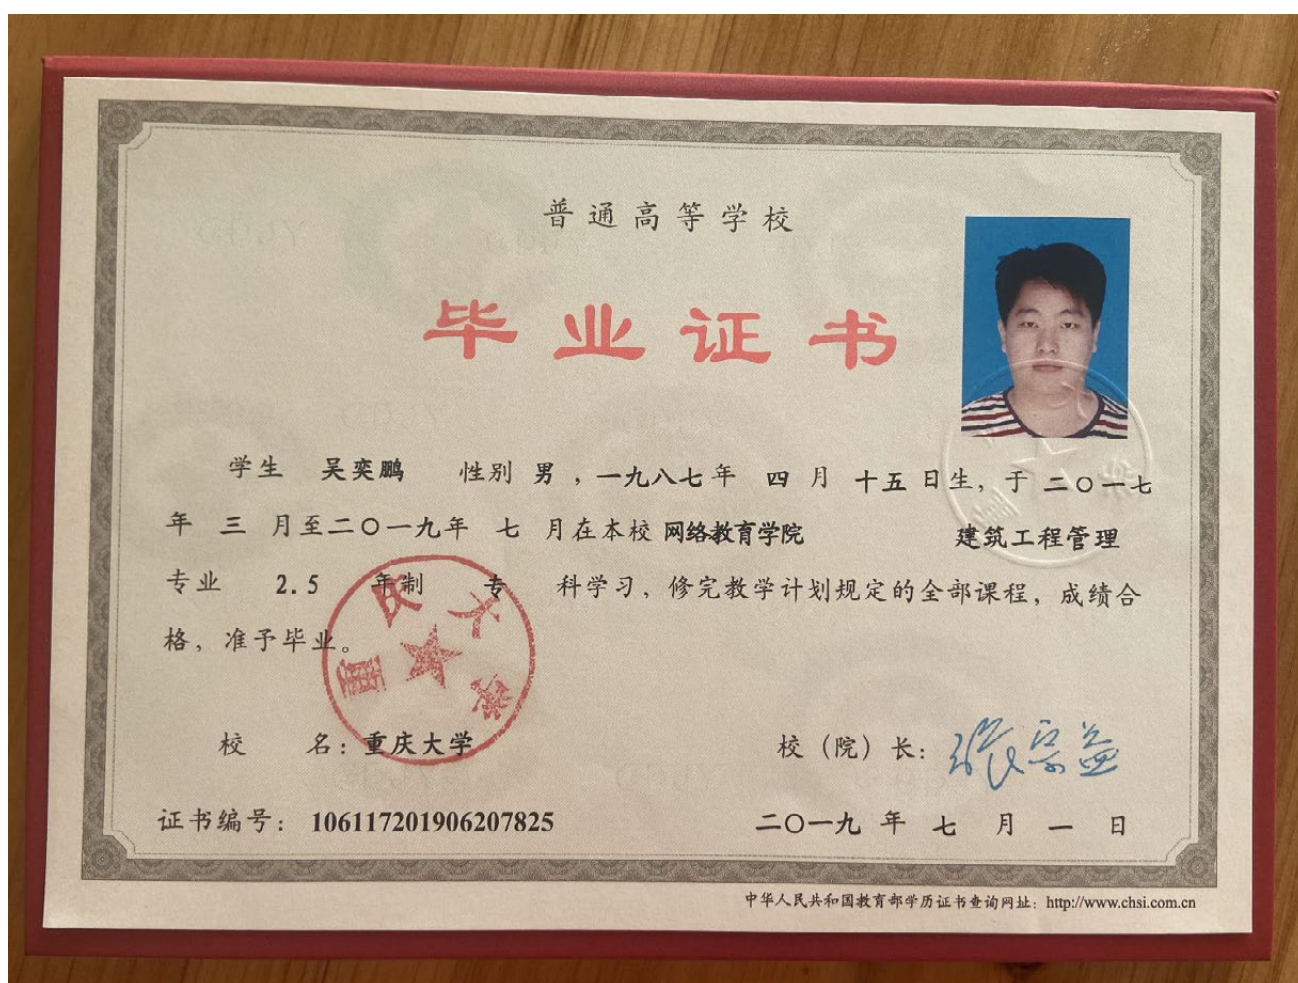 普通高等学校
毕业证书
学生 吴奕鹏 性别 男 ，一九八七年 四 月 十五 日生，于 二〇一七
年 三 月至二〇一九年 七 月在本校 网络教育学院 建筑工程管理
专业 2.5 年制 专 科学习，修完教学计划规定的全部课程，成绩合
格，准予毕业。
重庆大学
校 名：重庆大学 校（院）长：张宗益
证书编号： 106117201906207825 二〇一九 年 七 月 一 日
中华人民共和国教育部学历证书查询网址：http://www.chsi.com.cn